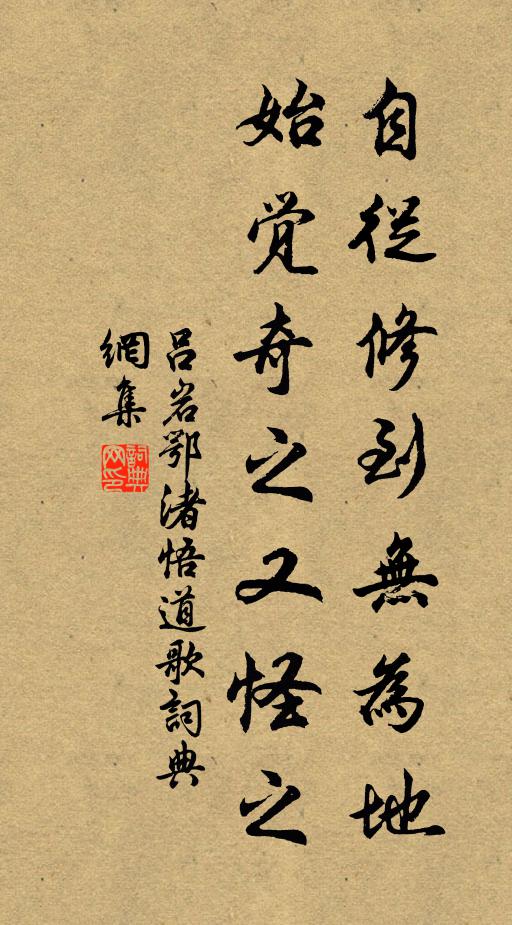 自從修到無為地
始觉奇之又怪之
吕岩鄂渚悟道歌詞典
網集
詞典
网印